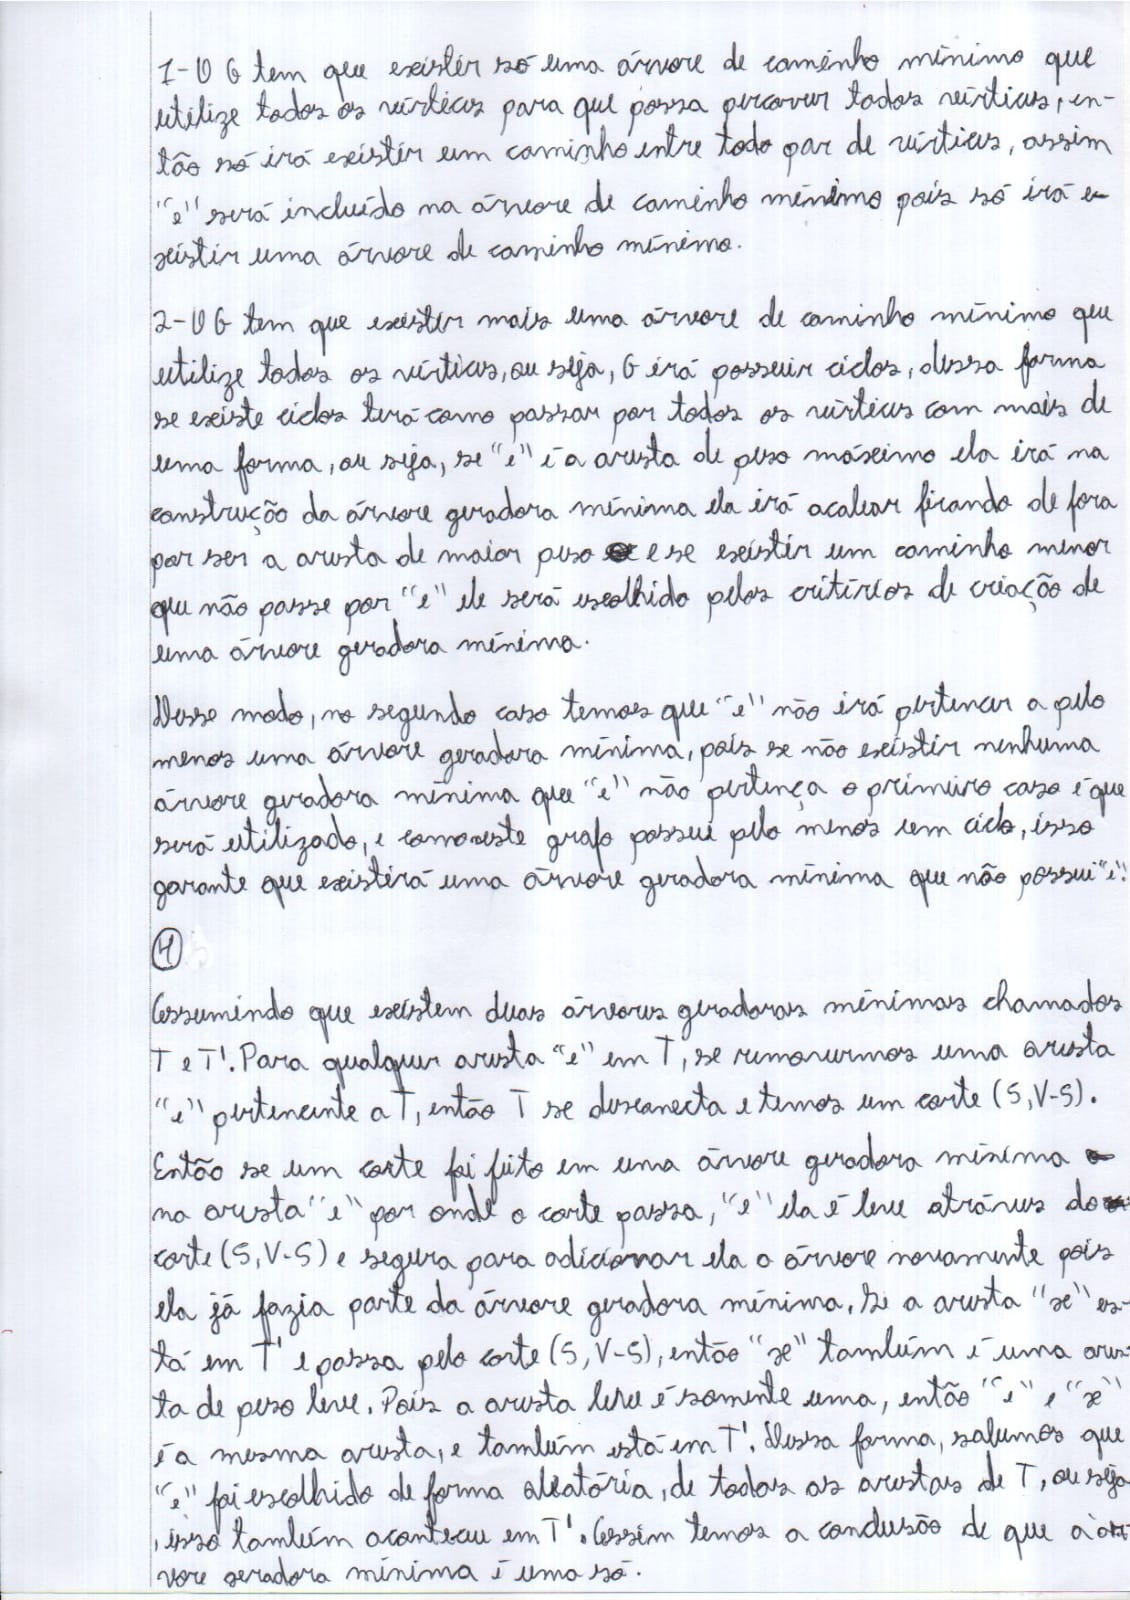 1-O G tem que existir só uma árvore de caminho mínimo que
utilize todos os vértices para que possa percorrer todos vértices, en-
tão só irá existir um caminho entre todo par de vértices, assim
"e" será incluído na árvore de caminho mínimo pois só irá e-
xistir uma árvore de caminho mínimo.
2-O G tem que existir mais uma árvore de caminho mínimo que
utilize todos os vértices, ou seja, G irá possuir ciclos, dessa forma
se existe ciclos terá como passar por todos os vértices com mais de
uma forma, ou seja, se "e" é a aresta de peso máximo ela irá na
construção da árvore geradora mínima ela irá acabar ficando de fora
por ser a aresta de maior peso e se existir um caminho menor
que não passe por "e" ele será escolhido pelos critérios de criação de
uma árvore geradora mínima.
Desse modo, no segundo caso temos que "e" não irá pertencer a pelo
menos uma árvore geradora mínima, pois se não existir nenhuma
árvore geradora mínima que "e" não pertença o primeiro caso é que
será utilizado, e como este grafo possui pelo menos um ciclo, isso
garante que existirá uma árvore geradora mínima que não possui "e".
4
Assumindo que existem duas árvores geradoras mínimas chamados
T e T'. Para qualquer aresta "e" em T, se removermos uma aresta
"e" pertencente a T, então T se desconecta e temos um corte (S, V-S).
Então se um corte foi feito em uma árvore geradora mínima
na aresta "e" por onde o corte passa, "e" ela é leve atráves do
corte (S, V-S) e segura para adicionar ela a árvore novamente pois
ela já fazia parte da árvore geradora mínima. Se a aresta "x" es-
tá em T' e passa pelo corte (S, V-S), então "x" também é uma ares-
ta de peso leve. Pois a aresta leve é somente uma, então "e" e "x"
é a mesma aresta, e também está em T'. Dessa forma, sabemos que
"e" foi escolhido de forma aleatória, de todas as arestas de T, ou seja
, isso também aconteceu em T'. Assim temos a conclusão de que a ár
vore geradora mínima é uma só.